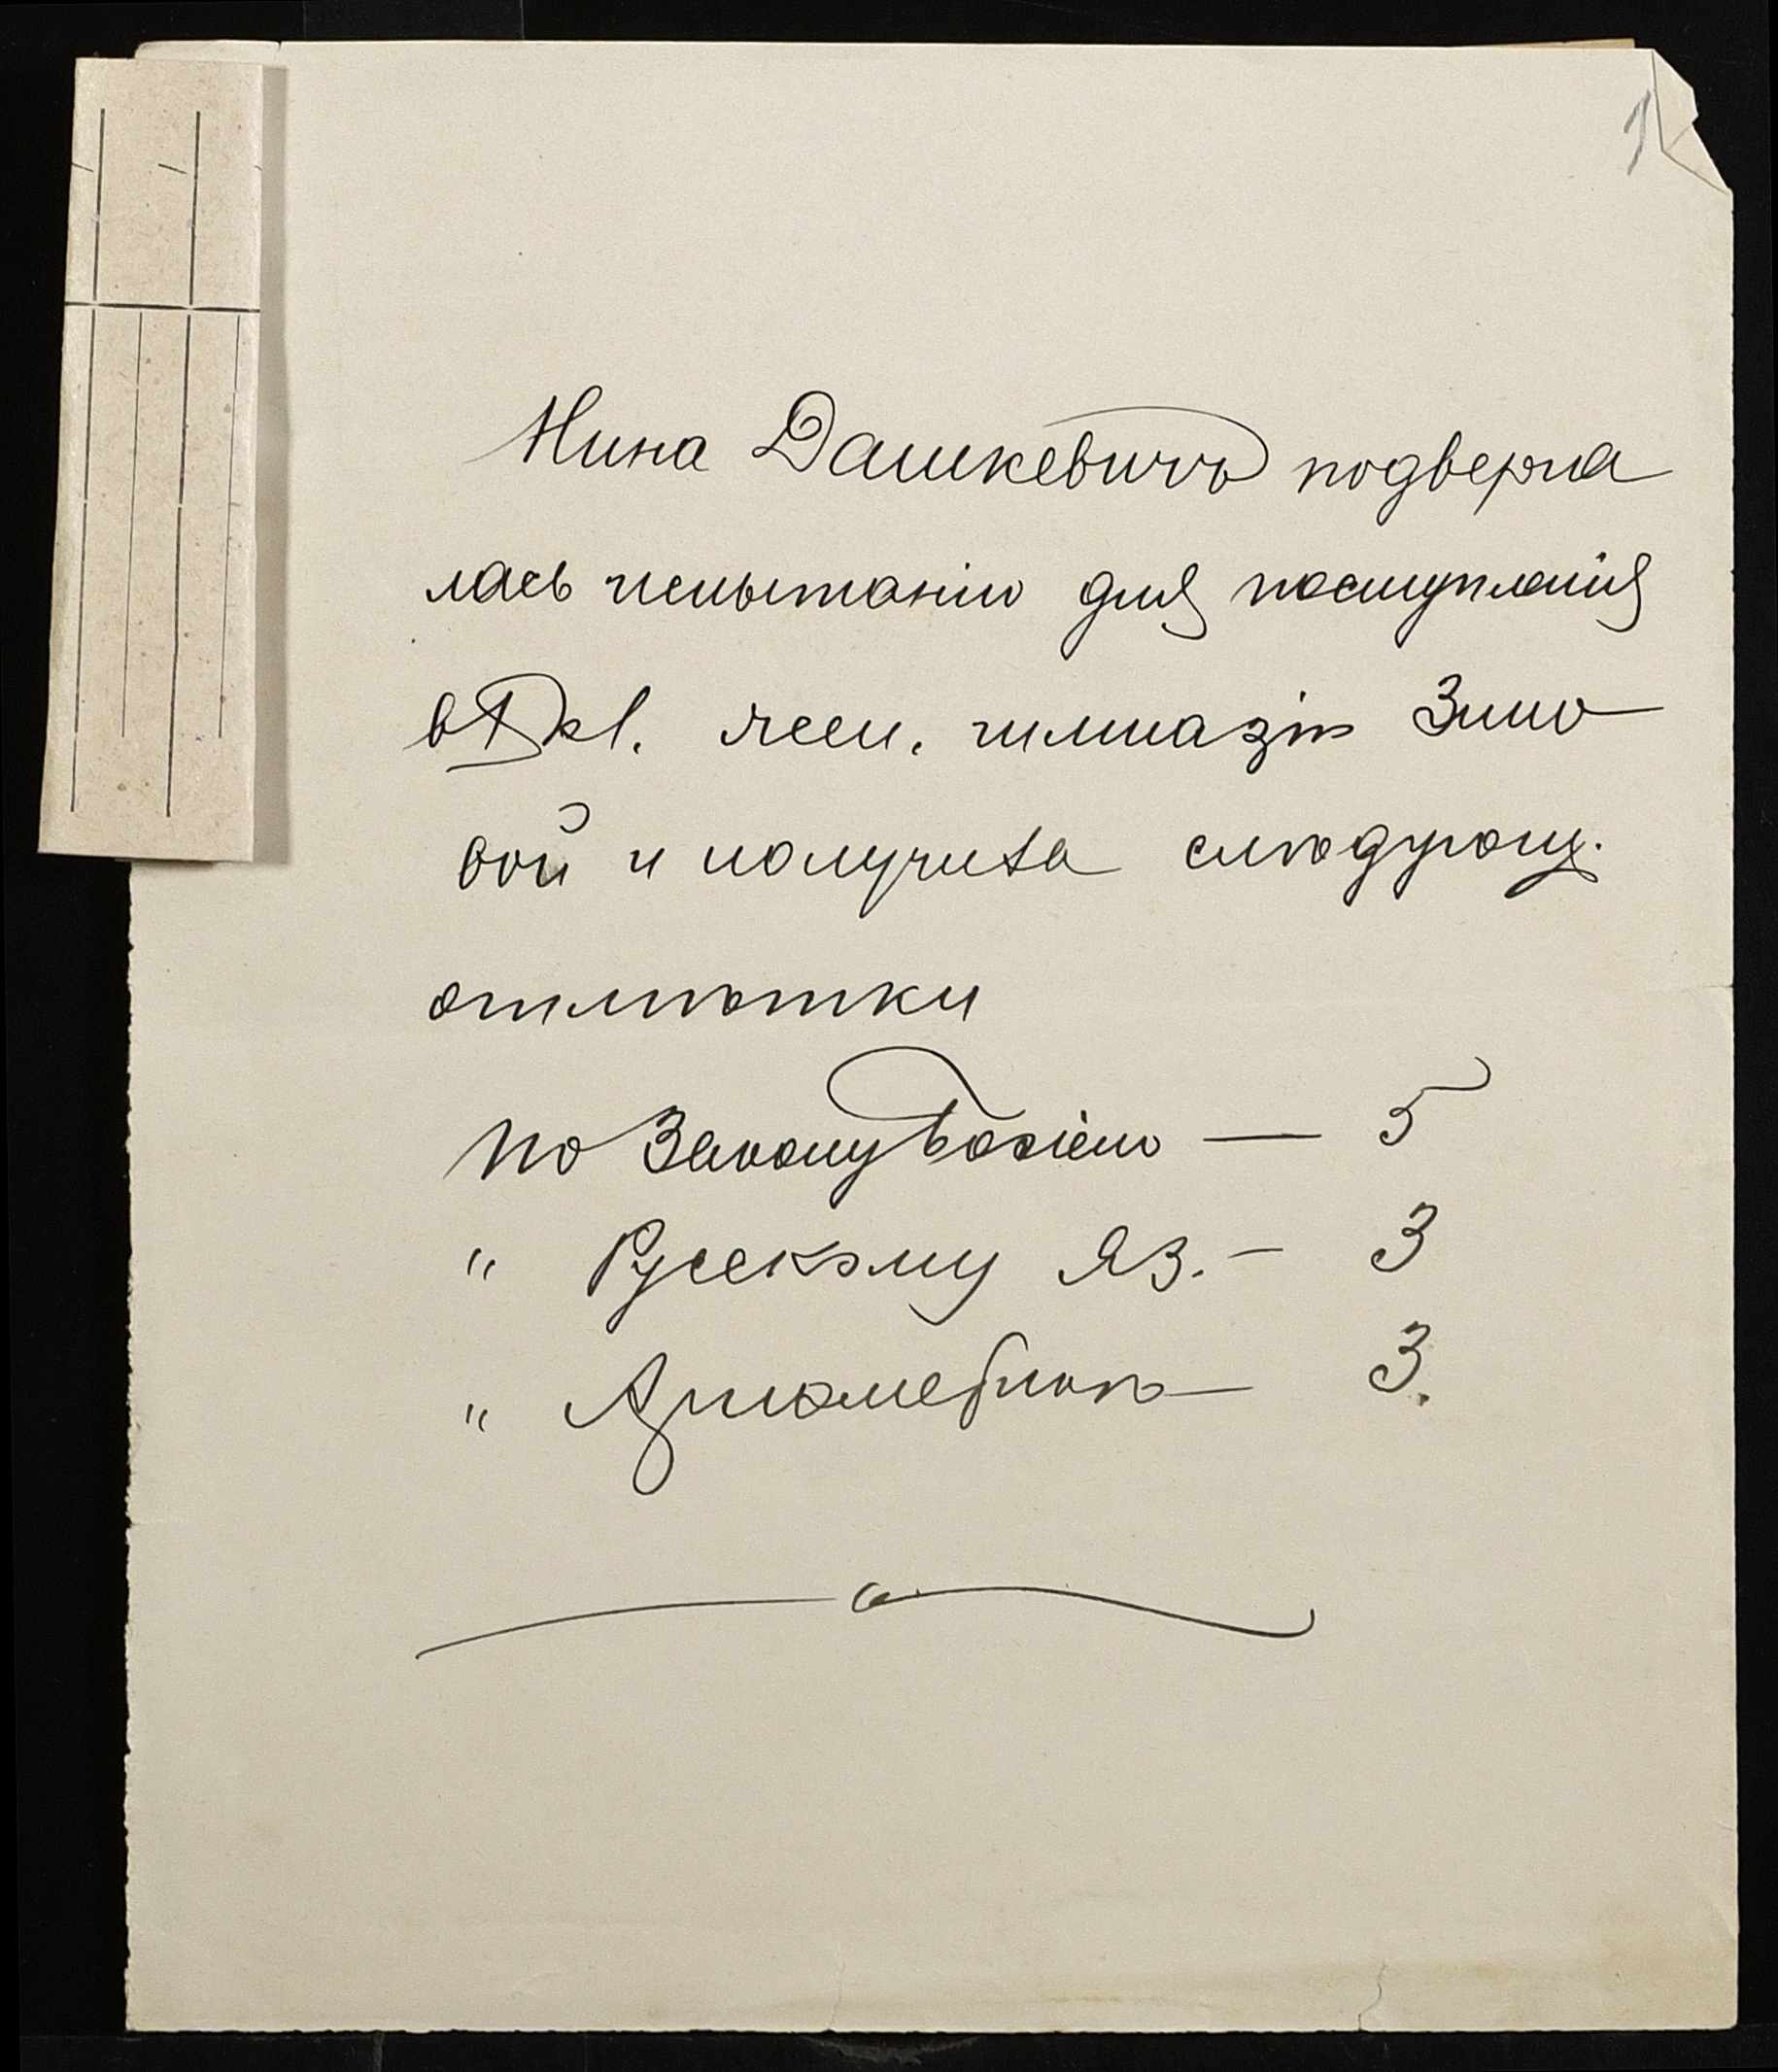 1
Нина Дашкевичъ подверга
лась испытанію для поступленія
в I кл. жен. гимназіи Зино
вой и получила слѣдующ.
отмѣтки
По Закону Божіею — 5
" Русскому яз. — 3
" Ариөметикѣ — 3.